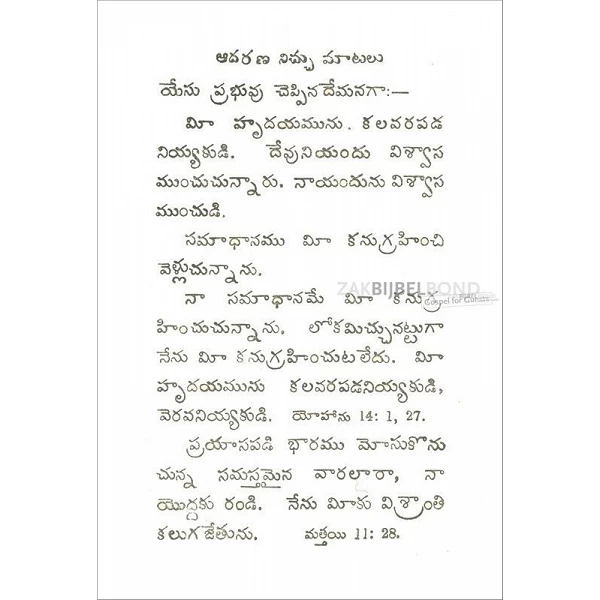 ఆదరణ నిచ్చు మాటలు
యేసు ప్రభువు చెప్పిన దేమనగా:—
మీ హృదయమును. కలవరపడ
నియ్యకుడి. దేవునియందు విశ్వాస
ముంచుచున్నారు. నాయందును విశ్వాస
ముంచుడి.
సమాధానము మీ కనుగ్రహించి
వెళ్లుచున్నాను.
ZAKBIJBELBOND
Gospel for Guests
నా సమాధానమే మీ కనుగ్ర
హించుచున్నాను. లోకమిచ్చునట్టుగా
నేను మీ కనుగ్రహించుటలేదు. మీ
హృదయమును కలవరపడనియ్యకుడి,
వెరవనియ్యకుడి. యోహాను 14: 1, 27.
ప్రయాసపడి భారము మోసుకొను
చున్న సమస్తమైన వారలారా, నా
యొద్దకు రండి. నేను మీకు విశ్రాంతి
కలుగజేతును. మత్తయి 11: 28.